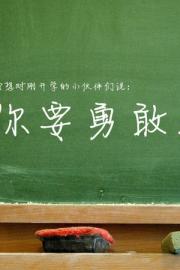 想对刚开学的小伙伴们说:
你要勇敢